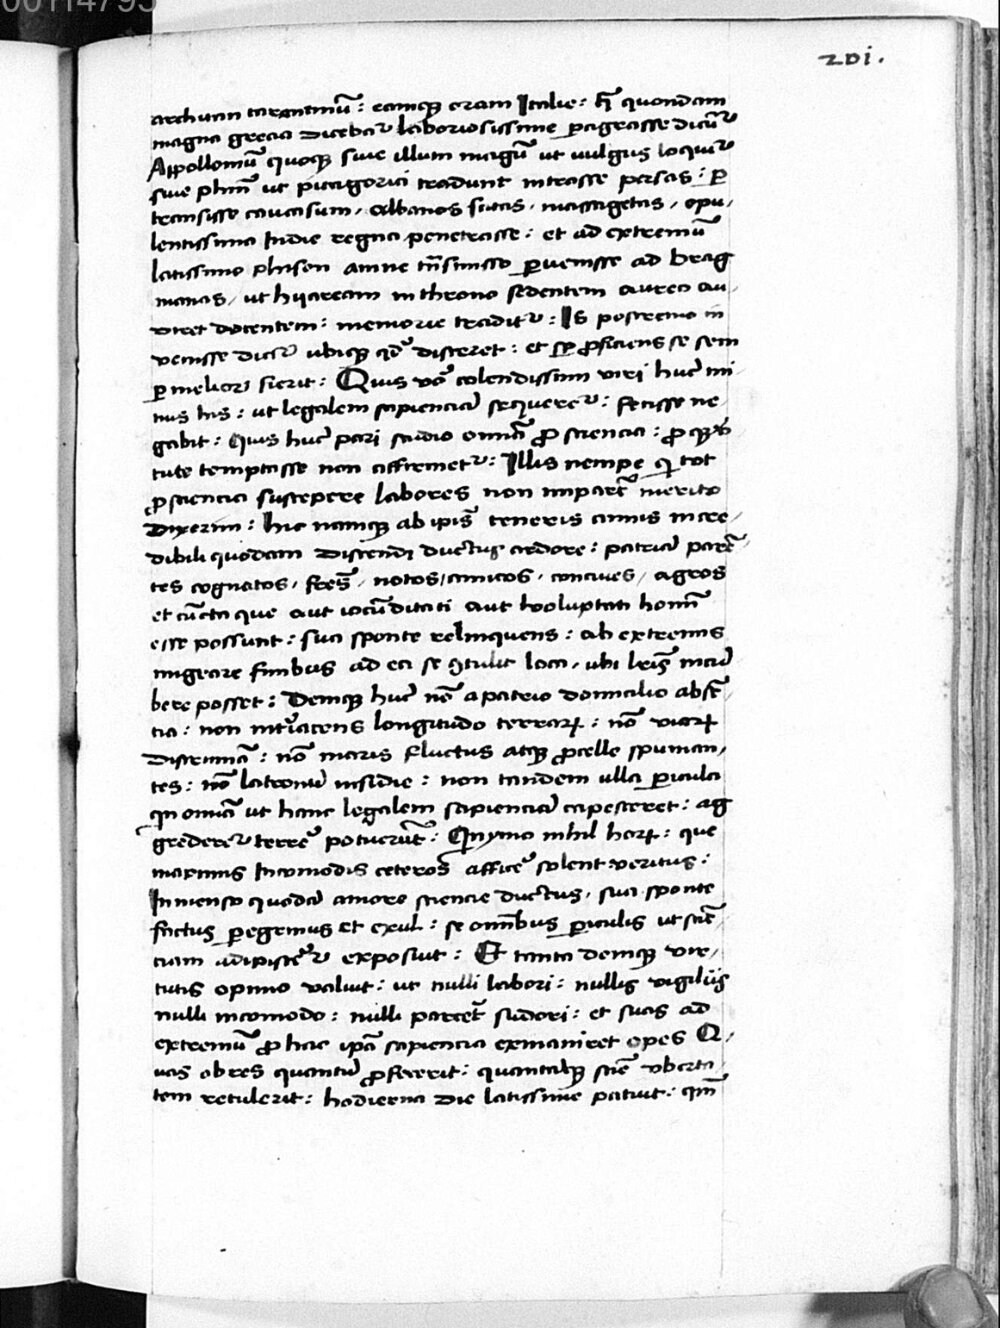 00114795
201.
architam tarentinū : eamqꝫ oram Italie : q̄ quondam
magna grecia dicebat᷑ laboriosissime ꝑagrasse dicūt᷑
Appolloniū quoqꝫ siue illum magū ut uulgus loquit᷑
siue phm̄ ut pitagorici tradunt intrasse persas : ꝑ
transisse caucasum / albanos sitas / massagetas / opu /
lentissima Indie regna penetrasse : et ad extremū
latissimo phison amne tn̄smisso ꝑuenisse ad brag
manas / ut hyarcam in throno sedentem aureo au /
diret docentem : memorie tradit᷑ : Is postremo in
uenisse dicit᷑ ubiqꝫ qd̄ disceret : et sꝑ ꝓficiens se sem
ꝑ melior fierit : Quis v̄o colendissimi viri huic mi
nus his : ut legalem sapienciā sequeret᷑ : fecisse ne
gabit : Quis huic pari studio omīa ꝓ sciencia : ꝓ qꝫ v̄
tute temptasse non affirmet᷑ : Illis nempe qi tot
ꝓ sciencia suscepere labores non imparē merito
dixerim : hic namqꝫ ab ipīs teneris annis incre /
dibili quodam discendi ductus ardore : patriā parē /
tes cognatos / fr̄es / notos / amicos / conciues / agros
et cūcta que aut iocūditati aut uoluptati homī
esse possunt : sua sponte relinquens : ab extremis
migrare finibus ad ea se ꝯtulit loca / ubi leḡis incū
bere posset : Deniqꝫ huic nō a patrio domicilio absē /
tia : non intiacens longitudo terrarꝝ : nō viarꝝ
discrimīa : nō maris fluctus atqꝫ ꝓcelle spuman /
tes : nō latronū insidie : non tandem ulla ꝑicula
qn omīa ut hanc legalem sapienciā capesceret : ag
grederet᷑ terrē potuerūt : Qnymo nihil horꝝ : que
maximis Incomodis ceteros afficē solent veritus :
Inmenso quodā amore sciencie ductus / sua sponte
factus ꝑegrinus et exul : se omībus ꝑiculis ut sciē /
ciam adipiscēt᷑ exposuit : Et tanta deniqꝫ vir /
tutis opinio valuit : ut nulli labori : nullis vigilijs
nulli incomodo : nulli parcēt sudori : et suas ad
extremū ꝓ hac ipā sapiencia exinaniret opes Q /
uas ob res quantū ꝓfecerit : quantāqꝫ sciē vberta /
tem retulerit : hodierna die latissime patuit : qm̄